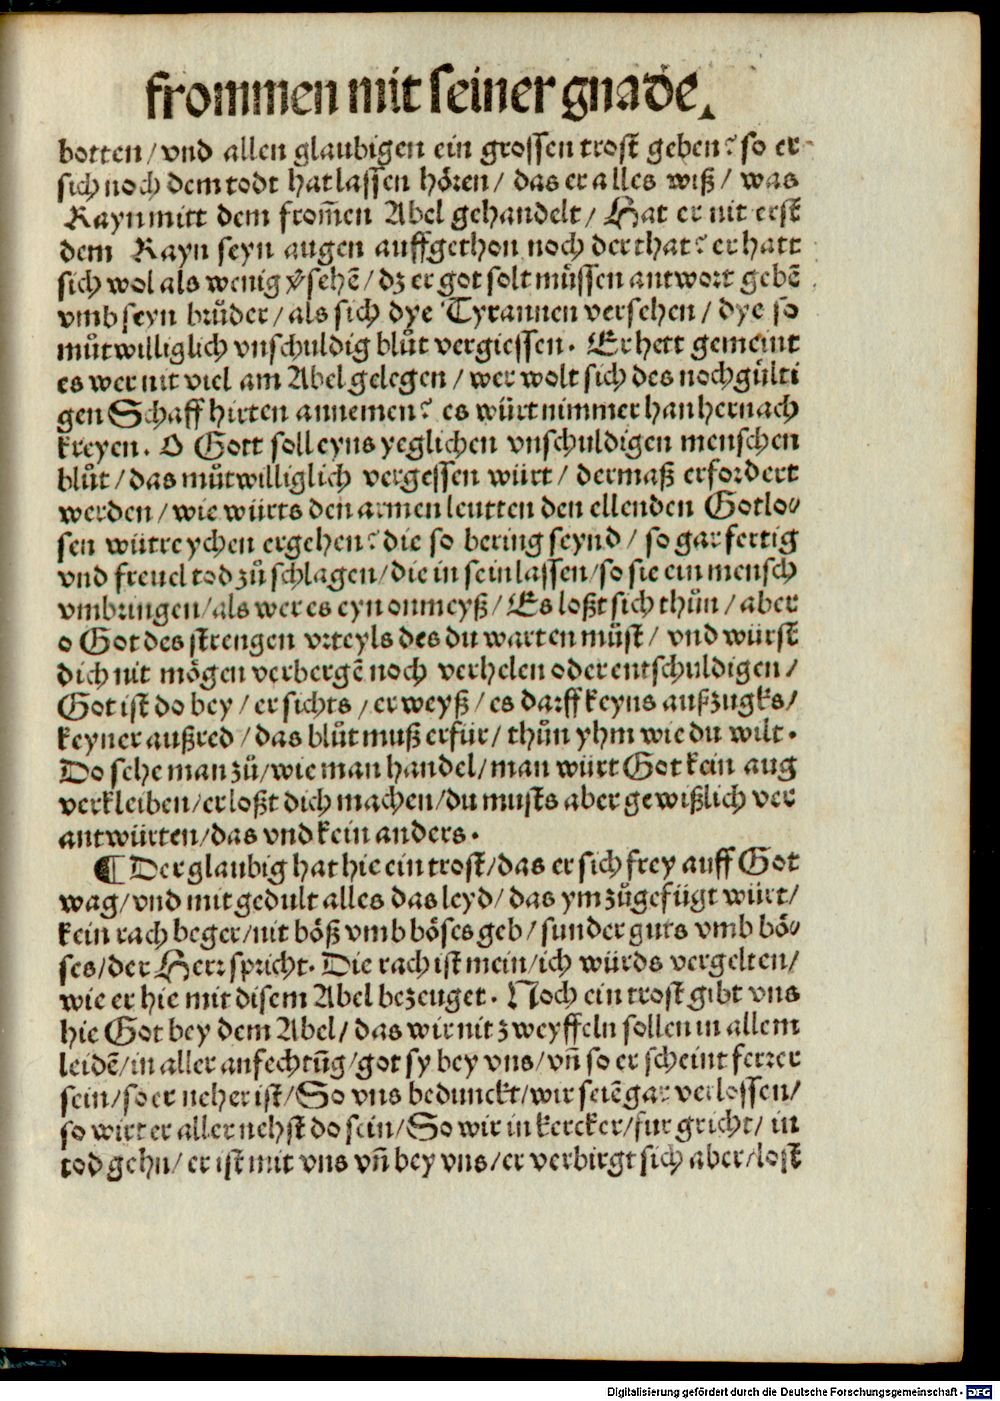 frommen mit seiner gnade.
botten/ vnd allen glaubigen ein grossen trost geben? so er
sich noch dem todt hat lassen hören/ das er alles wiß/ was
Kayn mitt dem from̃en Abel gehandelt/ Hat er nit erst
dem Kayn seyn augen auffgethon noch der that? er hatt
sich wol als wenig v̓sehẽ/ dz er got solt müssen antwort gebẽ
vmb seyn brůder/ als sich dye Tyrannen versehen/ dye so
můtwilliglich vnschuldig blůt vergiessen. Er hett gemeint
es wer nit viel am Abel gelegen/ wer wolt sich des nochgülti
gen Schaff hirten annemen? es würt nimmer han hernach
kreyen. O Gott soll eyns yeglichen vnschuldigen menschen
blůt/ das můtwilliglich vergessen würt/ dermaß erfordert
werden/ wie würts den armen leutten den ellenden Gotlo⸗
sen wütreychen ergehen? die so bering seynd/ so gar fertig
vnd freuel tod zů schlagen/ die in sein lassen/ so sie ein mensch
vmbringen/ als wer es eyn onmeyß/ Es loßt sich thůn/ aber
o Got des strengen vrteyls des du warten můst/ vnd würst
dich nit mögen verbergẽ noch verhelen oder entschuldigen/
Got ist do bey/ er sichts/ er weyß/ es darff keyns außzugks/
keyner außred/ das blůt muß erfür/ thůn yhm wie du wilt.
Do sehe man zů/ wie man handel/ man würt Got kein aug
verkleiben/ er loßt dich machen/ du musts aber gewißlich ver
antwürten/ das vnd kein anders.
¶ Der glaubig hat hie ein trost/ das er sich frey auff Got
wag/ vnd mit gedult alles das leyd/ das ym zůgefügt würt/
kein rach beger/ nit böß vmb böses geb/ sunder guts vmb bö⸗
ses/ der Herr spricht. Die rach ist mein/ ich würds vergelten/
wie er hie mit disem Abel bezeuget. Noch ein trost gibt vns
hie Got bey dem Abel/ das wir nit zweyffeln sollen in allem
leidẽ/ in aller anfechtũg/ got sy bey vns/ vñ so er scheint ferrer
sein/ so er neher ist/ So vns bedunckt/ wir seiẽ gar verlossen/
so wirt er aller nehst do sein/ So wir in kercker/ fur gricht/ in
tod gehn/ er ist mit vns vñ bey vns/ er verbirgt sich aber/ lost
Digitalisierung gefördert durch die Deutsche Forschungsgemeinschaft - DFG